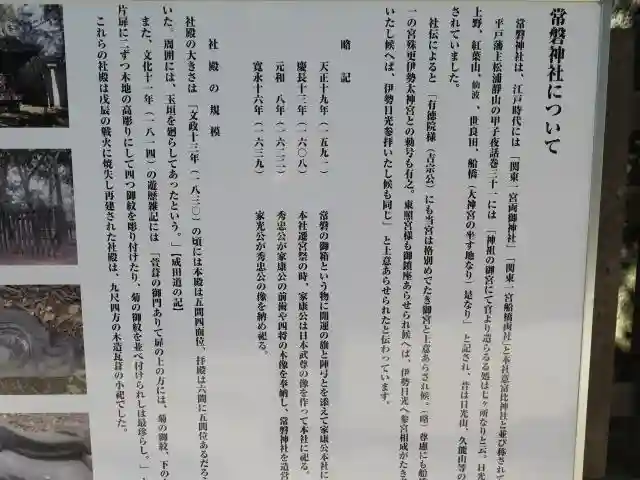 常磐神社について
常磐神社は、江戸時代には「関東一宮両御神社」「関東一宮船橋両社」と本社意富比神社と並び称されて
平戸藩主松浦靜山の甲子夜話巻三十一には「神祖の御宮にて官より造らるる処は七ヶ所なりと云。日光
上野、紅葉山、仙波、世良田、船橋（大神宮の半す地なり）是なり」と記され、昔は日光山、久能山等の
されていました。
社伝によると「有徳院様（吉宗公）にも当宮は格別めでたき御宮と上意あらされ候。（略）尊慮にも船
一の宮殊更伊勢太神宮との勅号も有之。東照宮様も御鎮座あらせられ候へば、伊勢日光へ参宮相成がたき
いたし候へば、伊勢日光参拝いたし候も同じ」と上意あらせられたと伝わっています。
略記
天正十九年（一五九一）　常磐の御箱という物に開運の旗と陣弓とを添えて家康公本社に
慶長十三年（一六〇八）　本社遷宮祭の時、家康公は日本武尊の像を作って本社に祀る。
元和　八年（一六二二）　秀忠公が家康公の前歯や四将の木像を奉納し、常磐神社を造営
寛永十六年（一六三九）　家光公が秀忠公の像を納め祀る。
社殿の規模
社殿の大きさは「文政十三年（一八三〇）の頃には本殿は五間四面位、拝殿は六間に五間位あるだろ
いた。周囲には、玉垣を廻らしてあったという。」【成田道の記】
また、文化十一年（一八一四）の遊歴雑記には「萱葺の御門ありて扉の上の方には、菊の御紋、下の
片扉に二ずつ木地の高彫りにして四つ御紋を彫り付けたり、菊の御紋を並べ付けられしは最珍らし。」
これらの社殿は戊辰の戦火に焼失し再建された社殿は、九尺四方の木造瓦葺の小祀でした。